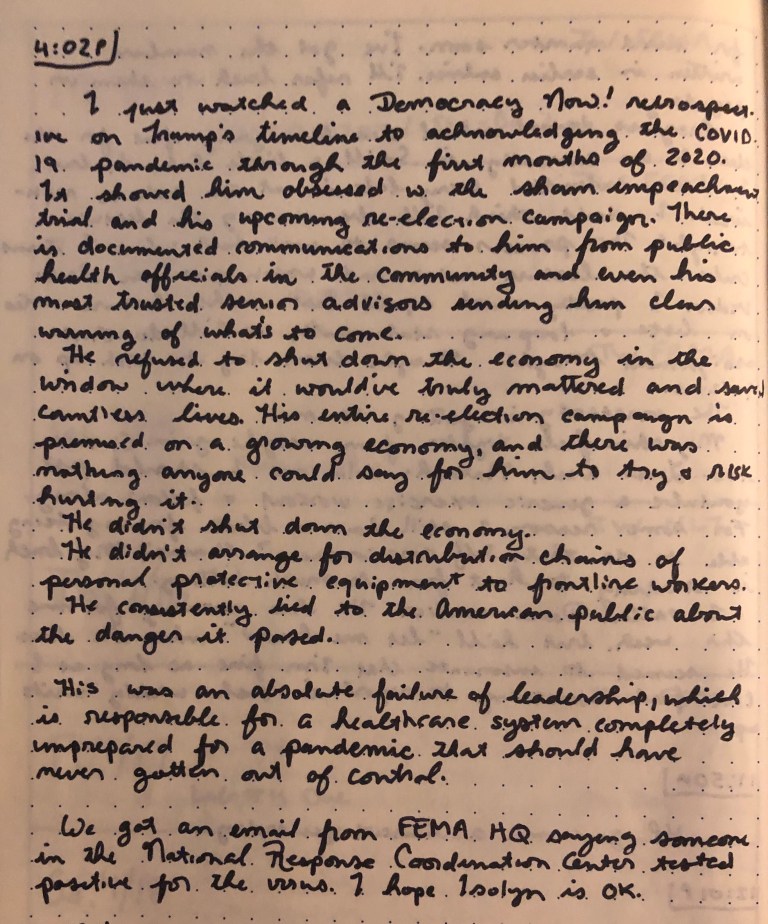 4:02P
I just watched a Democracy Now! retrospect-
ive on Trump's timeline to acknowledging the COVID
19 pandemic through the first months of 2020.
It showed him obsessed w the sham impeachment
trial and his upcoming re-election campaign. There
is documented communications to him from public
health officials in the community and even his
most trusted senior advisors sending him clear
warning of what's to come.
He refused to shut down the economy in the
window where it would've truly mattered and saved
countless lives. His entire re-election campaign is
premised on a growing economy, and there was
nothing anyone could say for him to try & risk
hurting it.
He didn't shut down the economy.
He didn't arrange for distribution chains of
personal protective equipment to frontline workers.
He consistently lied to the American public about
the danger it posed.
His was an absolute failure of leadership, which
is responsible for a healthcare system completely
unprepared for a pandemic that should have
never gotten out of control.
We got an email from FEMA HQ saying someone
in the National Response Coordination Center tested
positive for the virus. I hope Isolyn is OK.